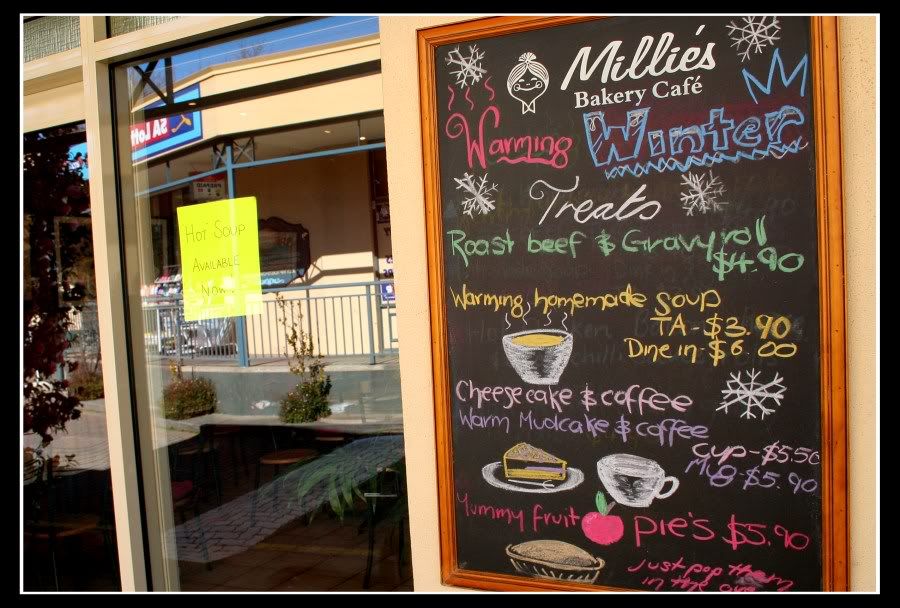 Hot Soup
Available
Now
Millie's
Bakery Café
Warming Winter
Treats
Roast beef & Gravy roll
$4.90
Warming homemade soup
TA - $3.90
Dine in - $6.00
Cheesecake & coffee
Warm Mudcake & coffee
Cup - $5.50
Mug - $5.90
Yummy fruit pie's $5.90
Just pop them
in the